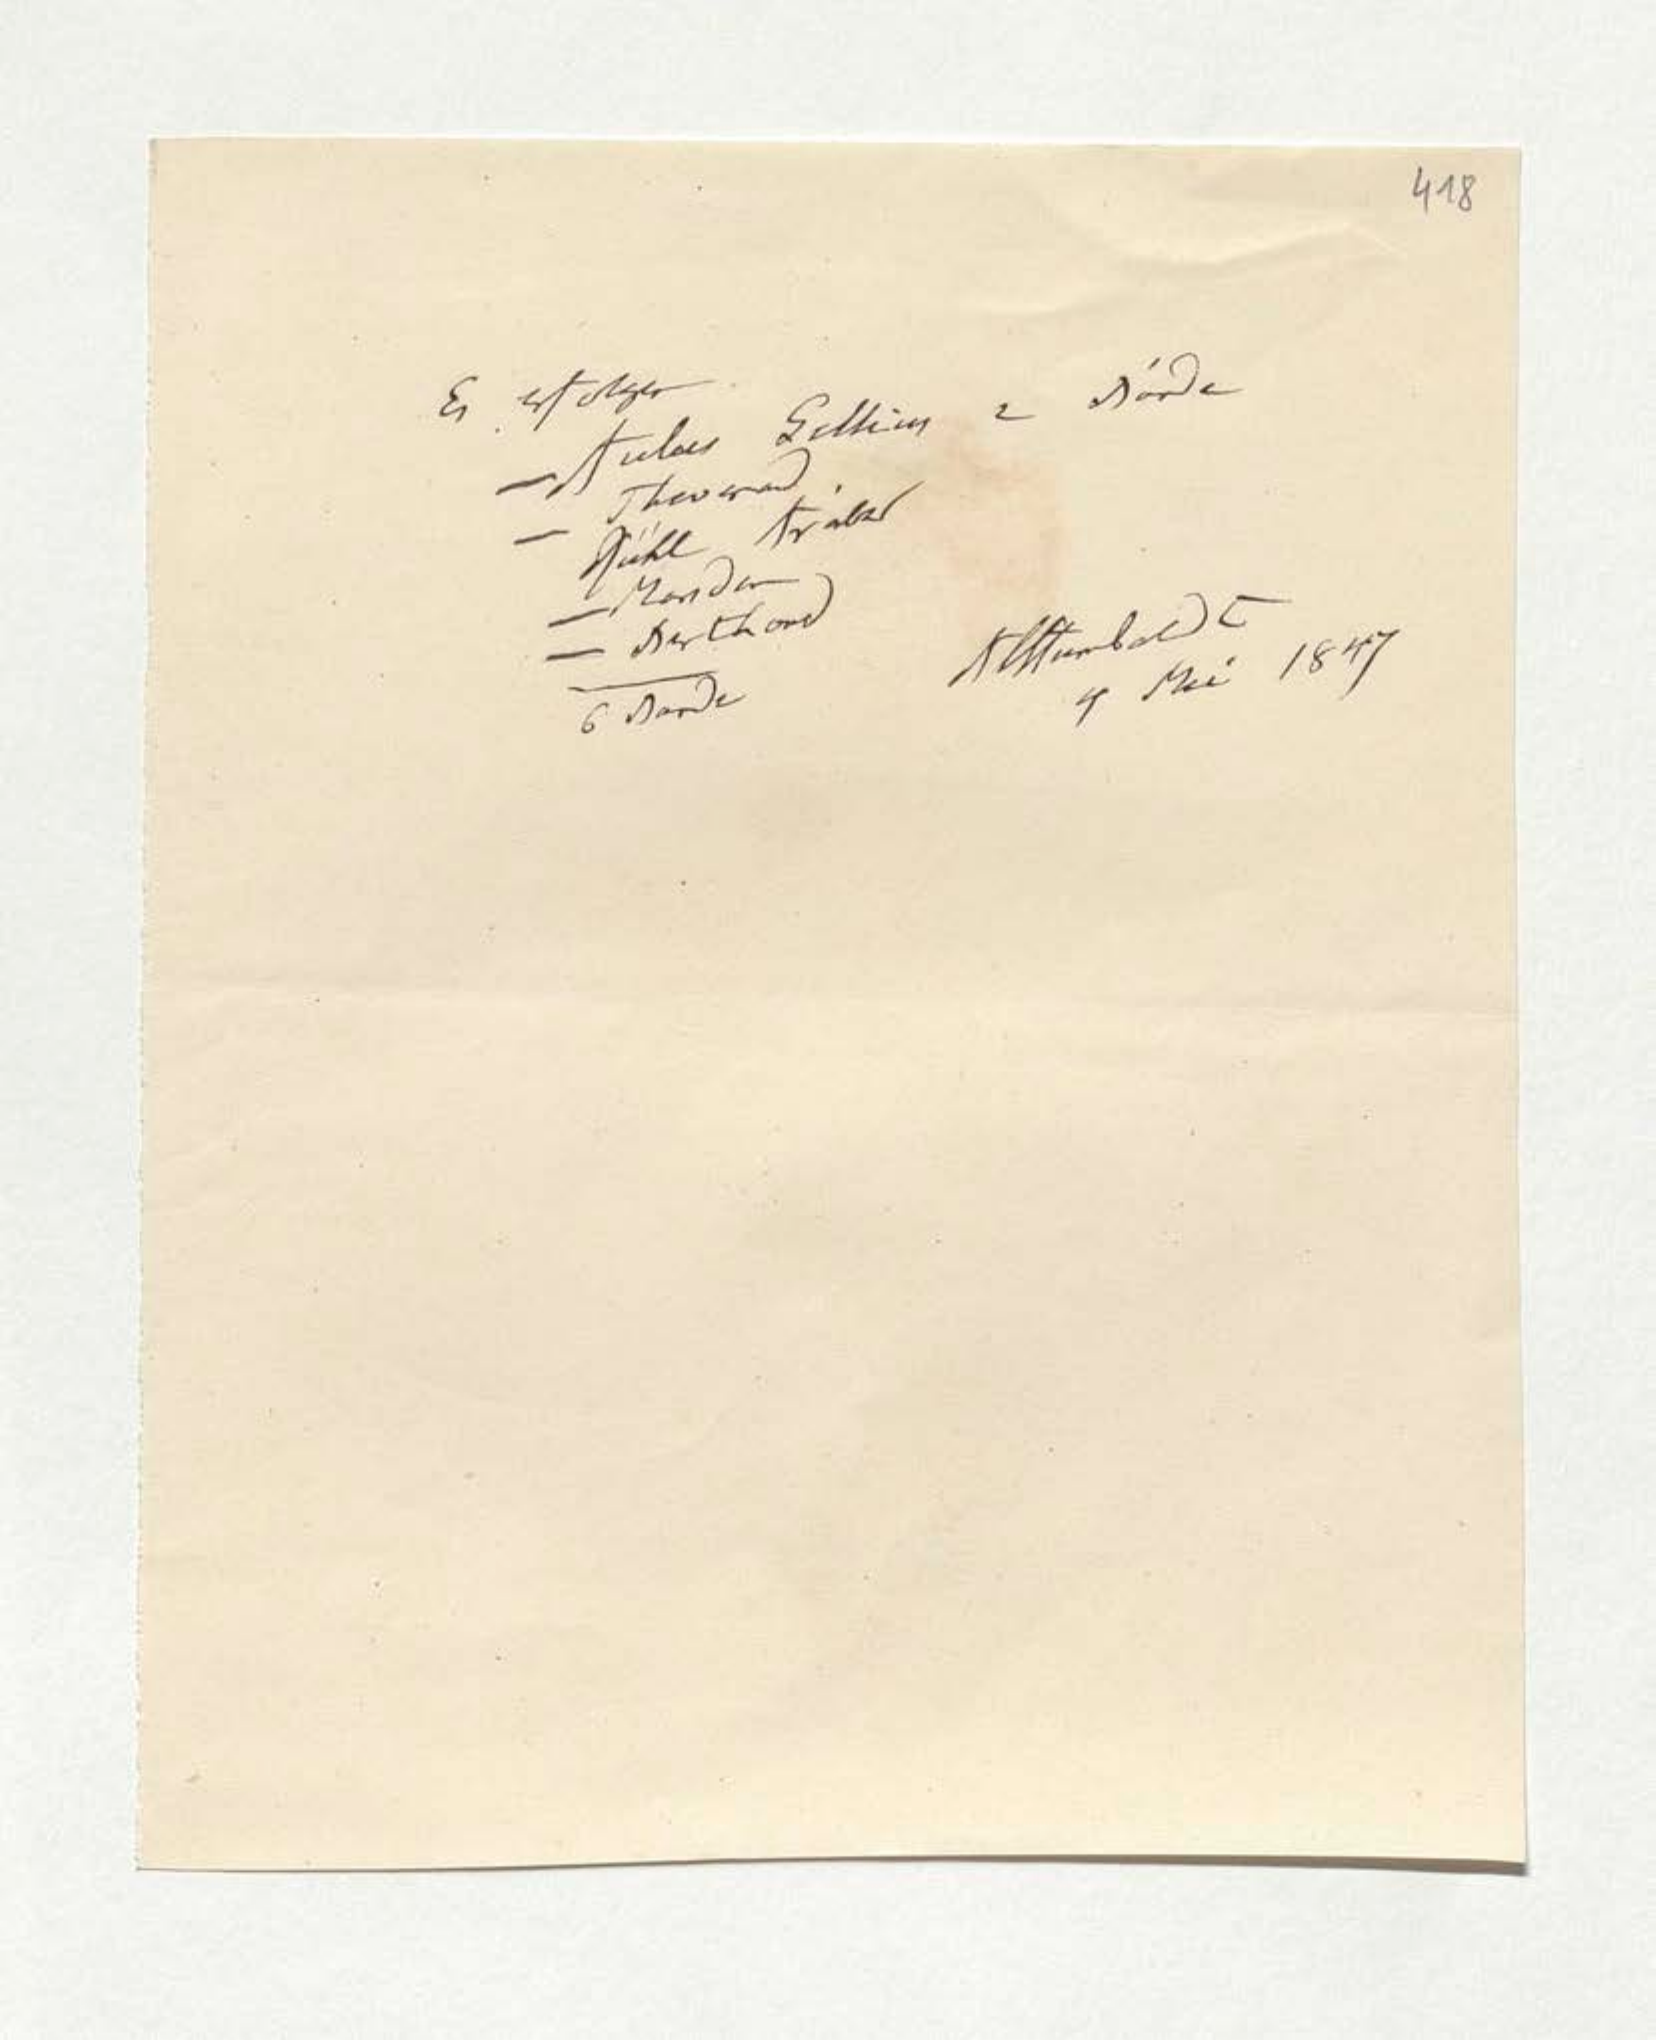 418
Es erfolgen
— Aulus Gellius 2 Bände
— Thevenard
Kühl Araber
— Marsden
— Berthoud
6 Bände
AlHumboldt
9 Mai 1847